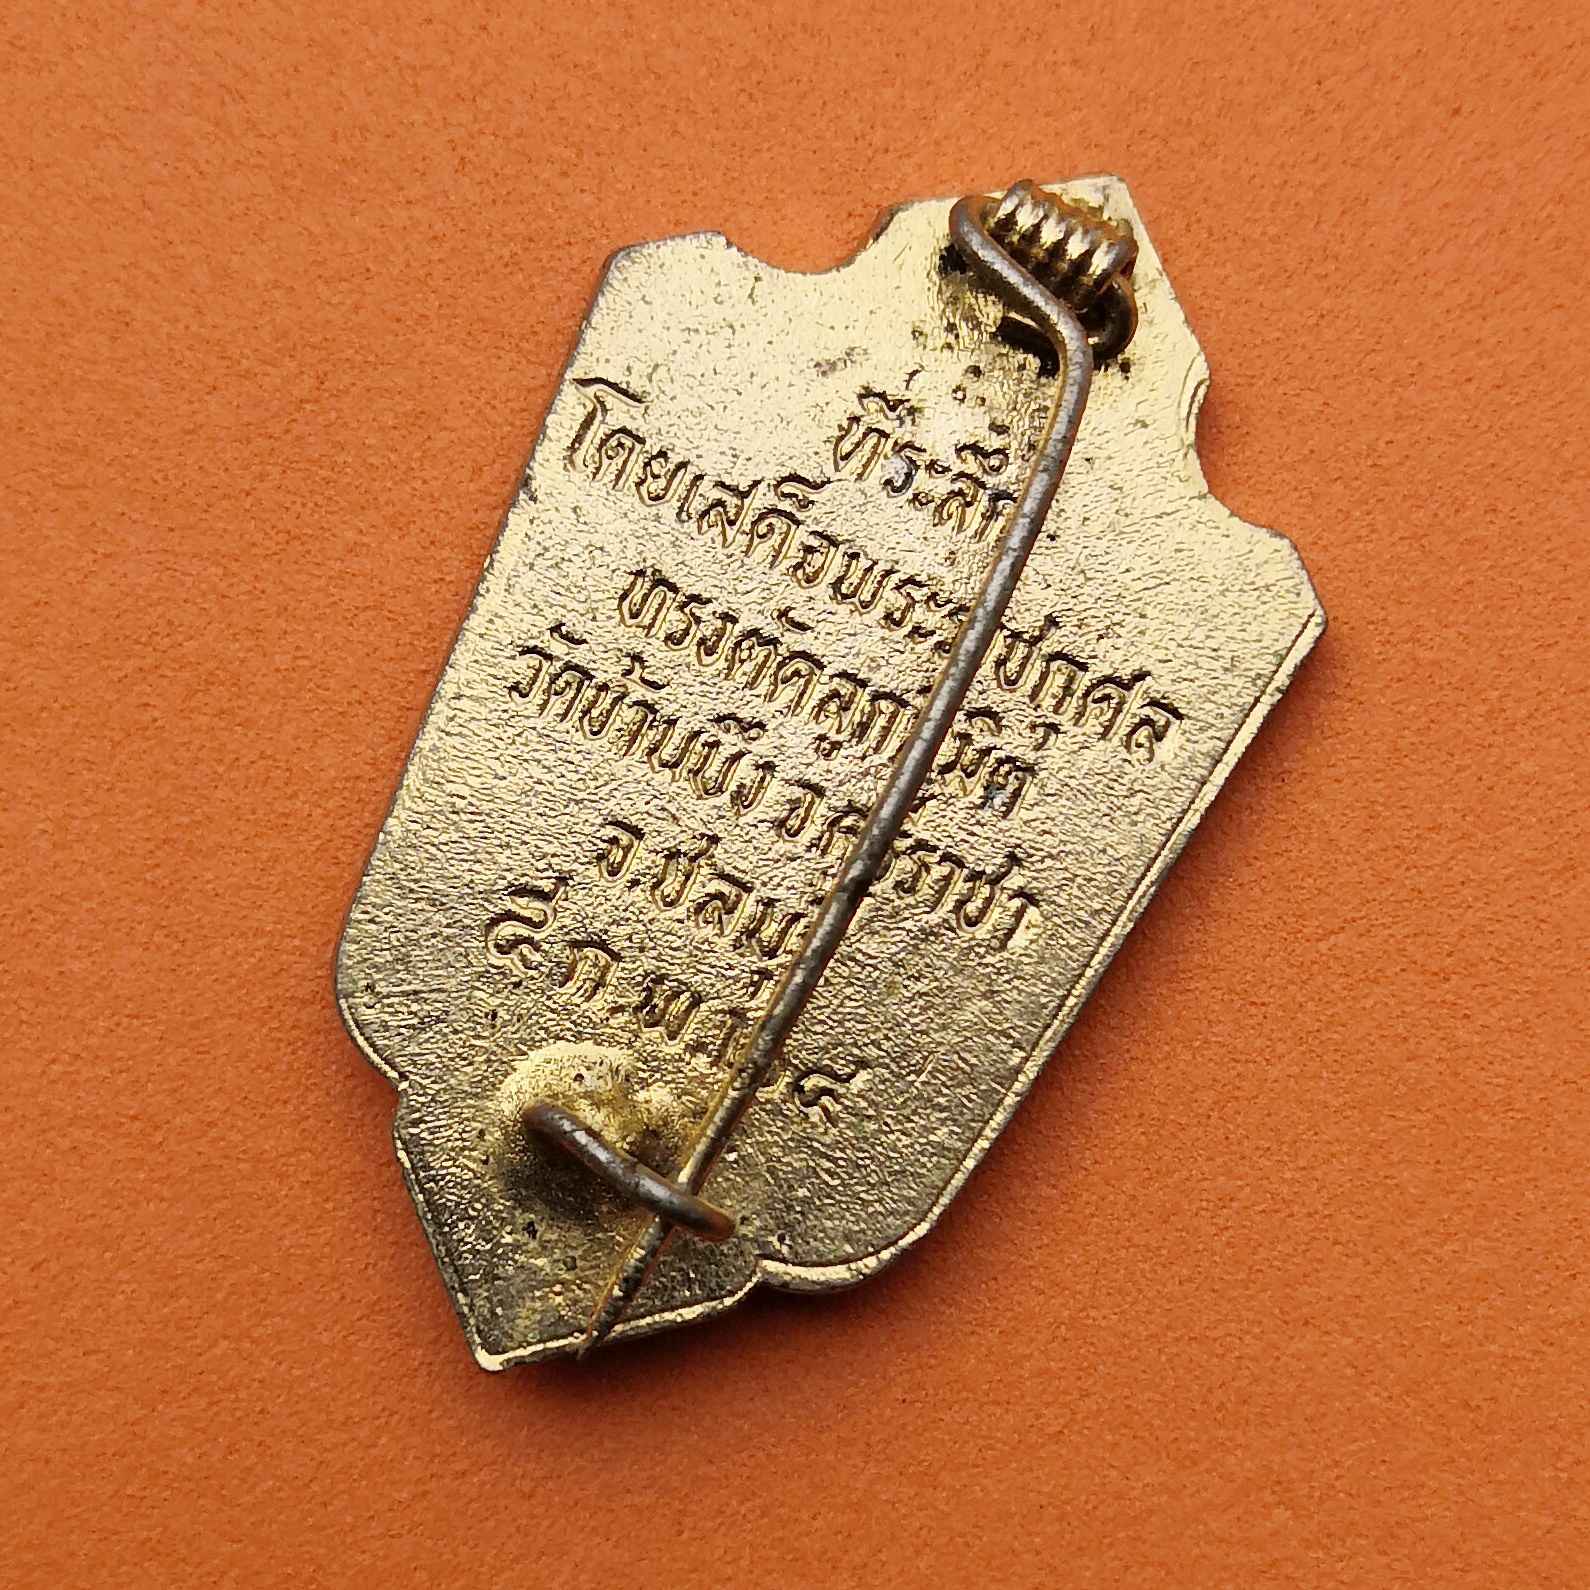 ที่ระลึก
โดยเสด็จพระราชกุศล
ทรงตัดลูกนิมิต
วัดบ้านบึง อ.ศรีราชา
จ.ชลบุรี
๕ ก.พ.